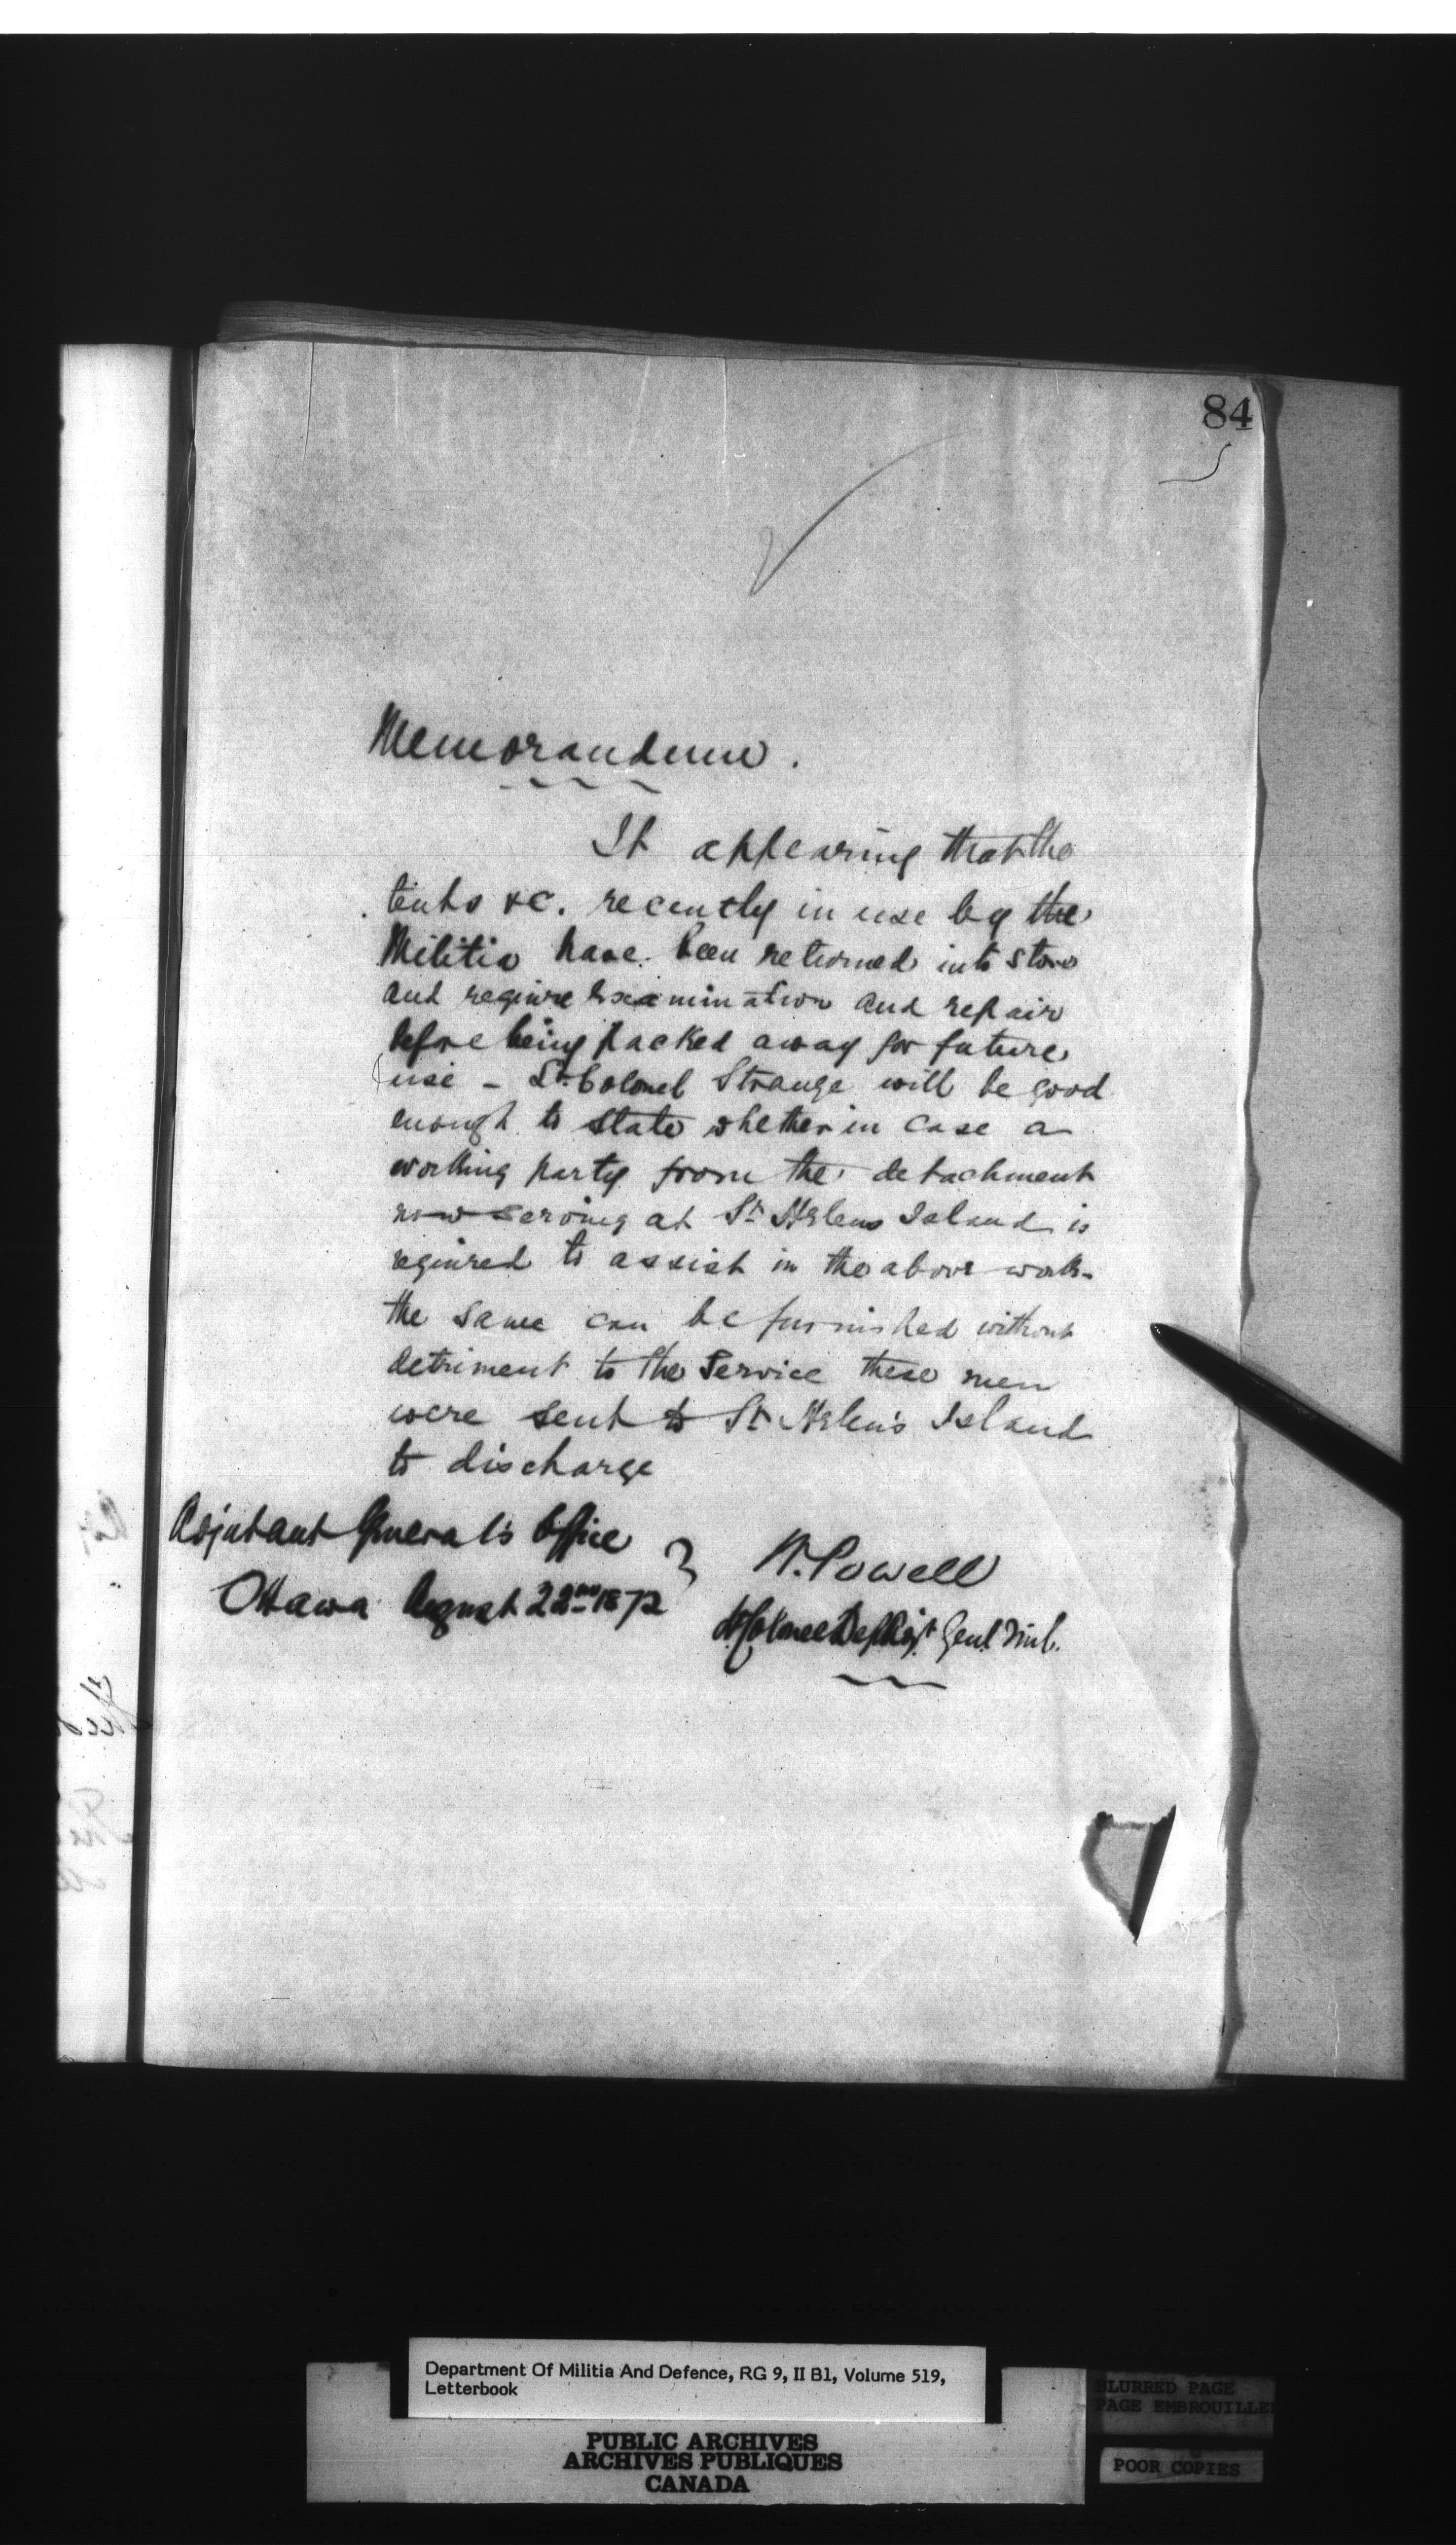 84
Memorandum.
It appearing that the
tents &c. recently in use by the
Militia have been returned into store
and require examination and repair
before being packed away for future
use - Lt. Colonel Strange will be good
enough to state whether in case a
working party from the detachment
now serving at St Helens Island is
required to assist in the above work-
the same can be furnished without
detriment to the Service these men
were sent to St Helen's Island
to discharge
Adjutant General's Office
Ottawa August 22nd 1872
W. Powell
Lt Colonel Dep Adjt Genl
Department Of Militia And Defence, RG 9, II B1, Volume 519,
Letterbook
PUBLIC ARCHIVES
ARCHIVES PUBLIQUES
CANADA
BLURRED PAGE
PAGE EMBROUILLEE
POOR COPIES